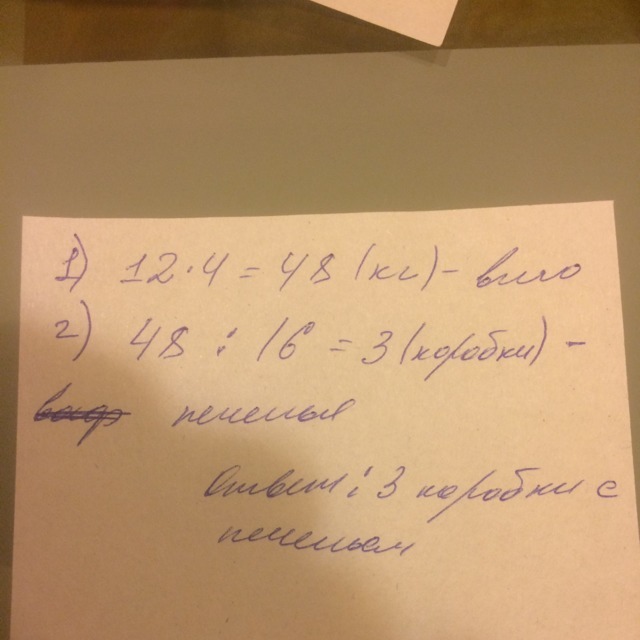 1) 12·4 = 48 (кг) – всего
2) 48 : 16 = 3 (коробки) –
печенья
Ответ: 3 коробки с
печеньем